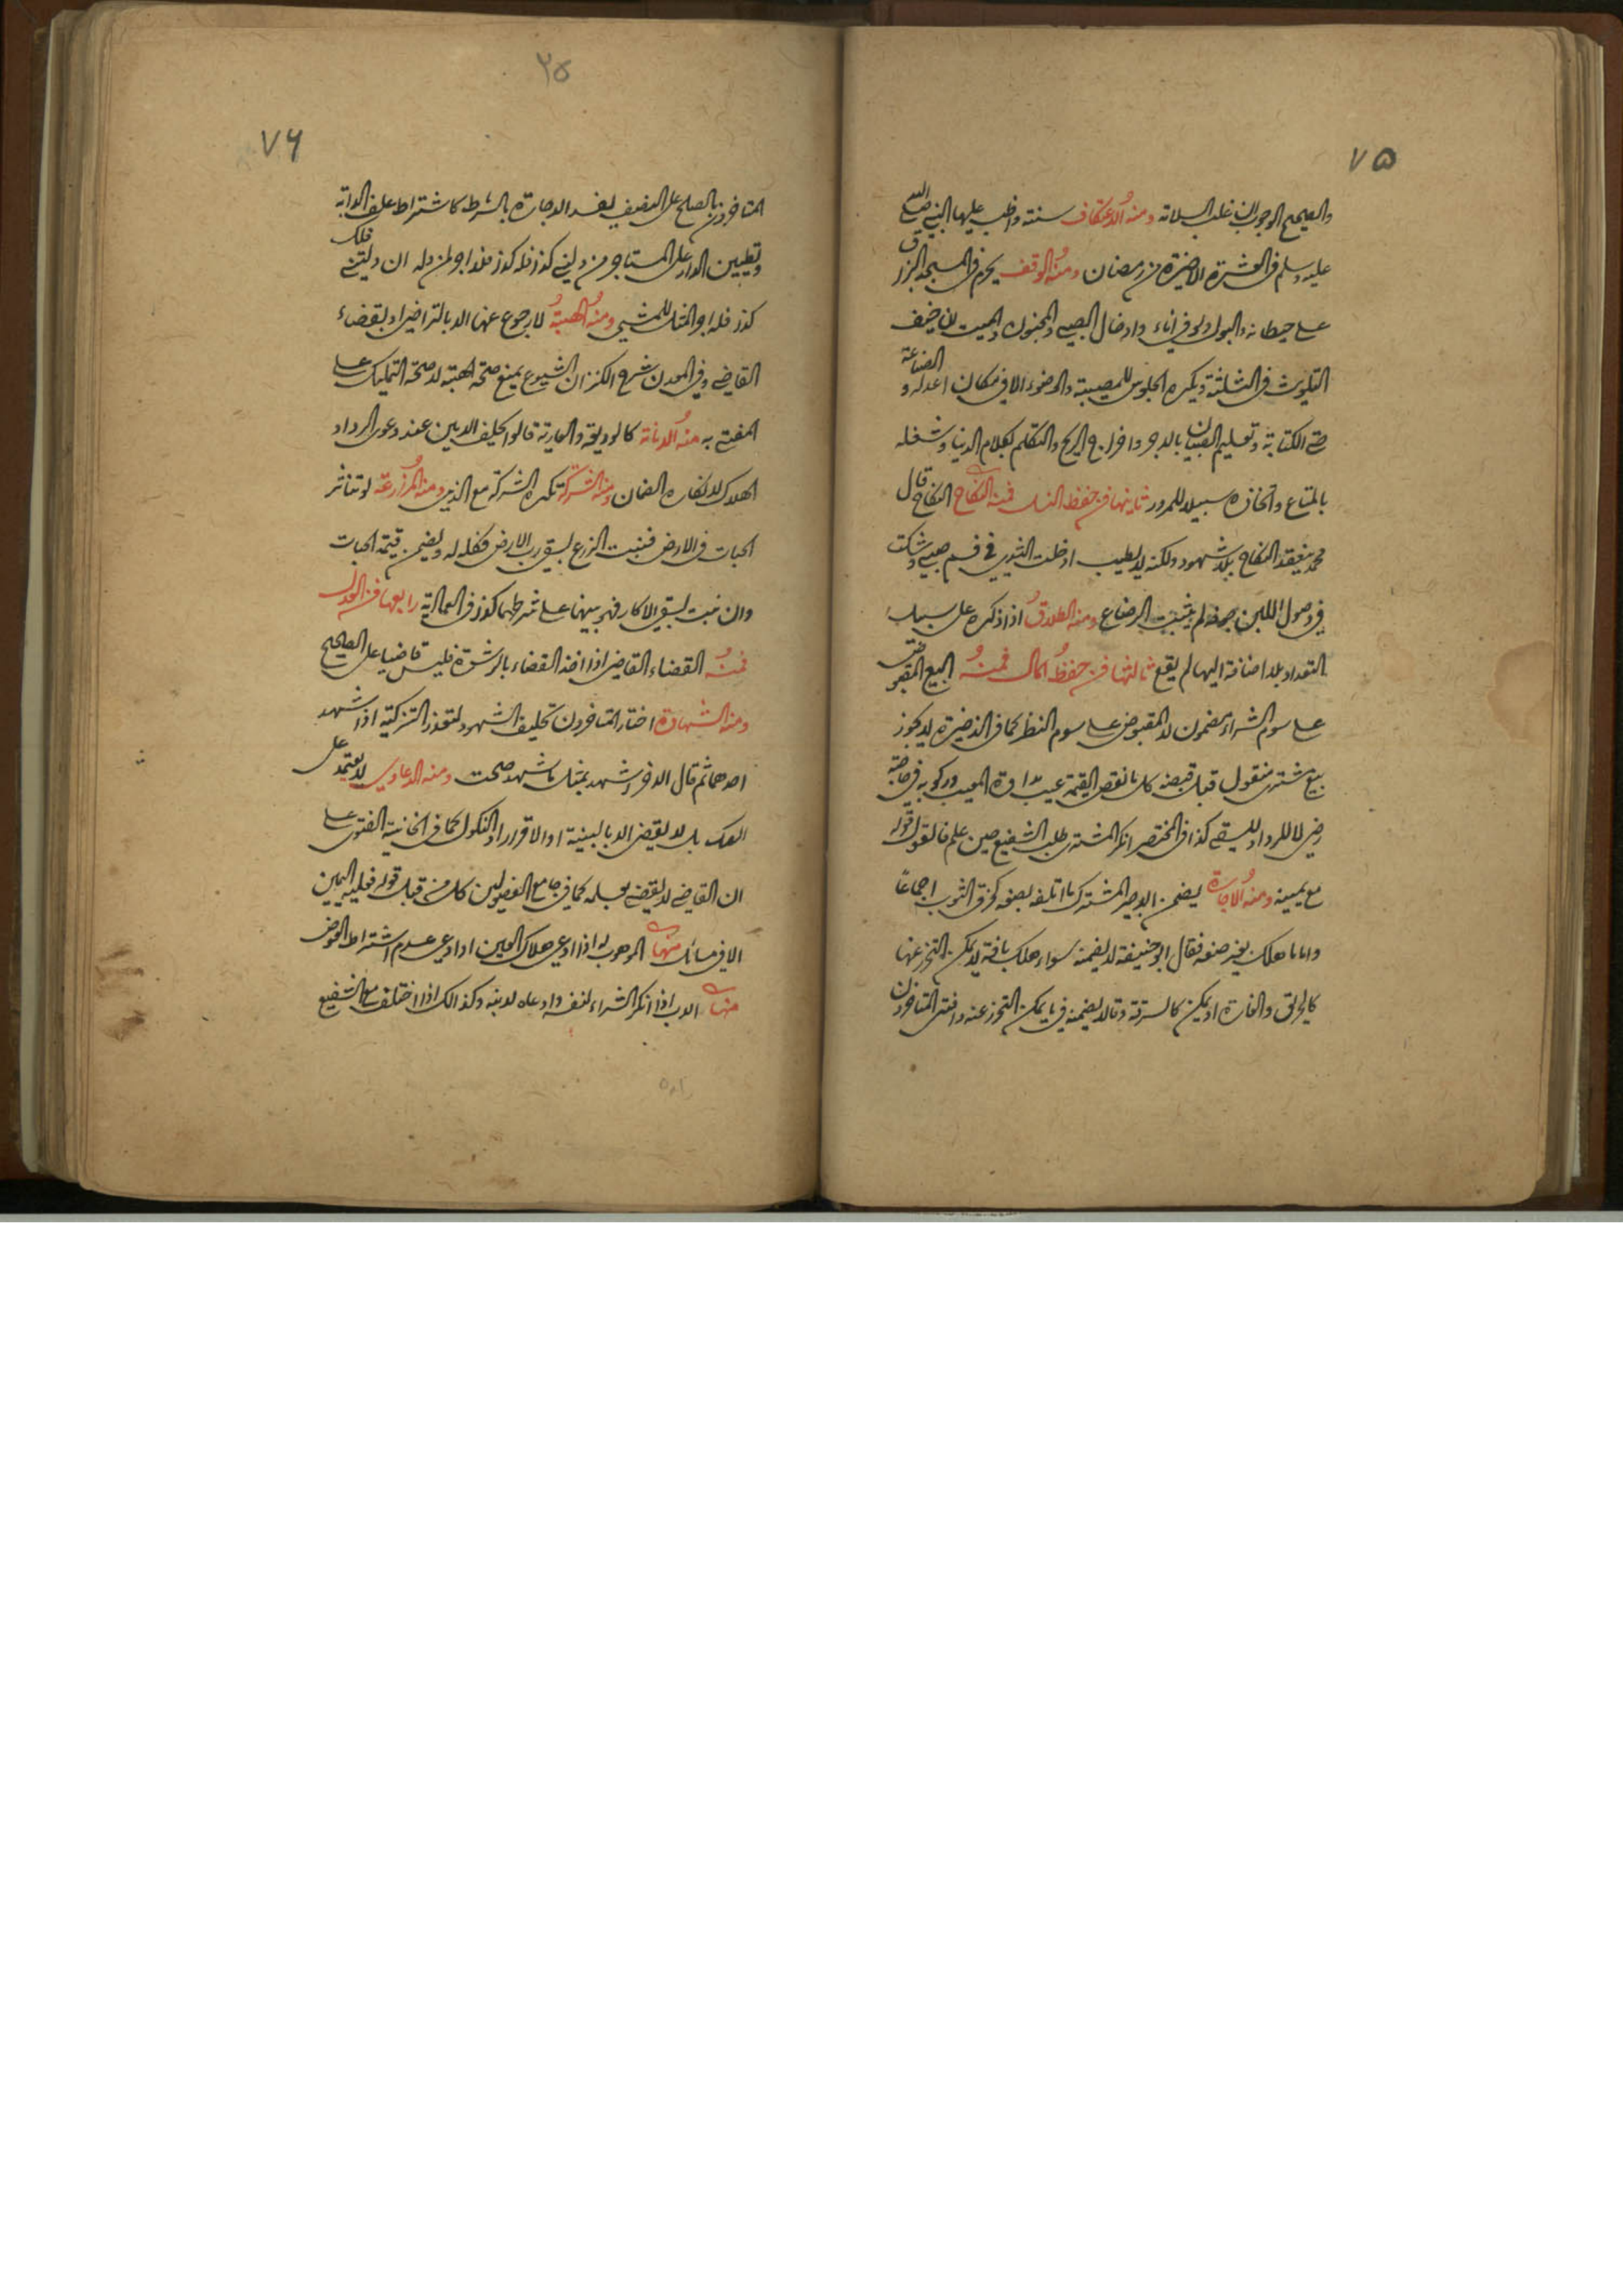 ٧٥
والصحيح الوجوب ان غلب السلامة ومنه الاعتكاف سنة واظب عليها النبي صلى الله
عليه وسلم في العشرة الاخيرة من رمضان ومنه الوقف يحرم في المسجد البزاق
على حيطانه والبول ولو في اناء وادخال الصبي والمجنون والميت ان خيف
التلويث في الثلثة ويكره الجلوس للمصيبة والوضوء الا في مكان اعد له و الصناعة
حتى الكتابة وتعليم الصبيان بالاجر واخراج الريح والتكلم بكلام الدنيا وشغله
بالمتاع واتخاذه سبيلا للمرور ثانيها فن حفظ النسل فمنه النكاح النكاح قال
محمد ينعقد النكاح بلا شهود ولكنه لا يطيب ادخلت الثدي في فم صبي وشكت
في وصول اللبن جوفه لم يثبت الرضاع ومنه الطلاق اذا ذكره على سبيل
التعداد بلا اضافة اليها لم يقع ثالثها فن حفظ المال فمنه البيع المقبوض
على سوم الشراء مضمون لا المقبوض على سوم النظر كما في الذخيرة لا يجوز
بيع مشترى منقول قبل قبضه كل ما نقص القيمة عيب مداواة المعيب وركوبه في حاجته
رضى لا للرد او للسقي كذا في المختصر انكر المشتري طلب الشفيع حين علم فالقول قوله
مع يمينه ومنه الاجارة يضمن الاجير المشترك ما اتلفه بصنعه كخرق الثوب اجماعا
واما ما هلك بغير صنعه فقال ابو حنيفة لا يضمنه سواء هلك بآفة لا يمكن التحرز عنها
كالحريق والغارة او يمكن كالسرقة وقالا يضمنه فيما يمكن التحرز عنه وافتى المتاخرون
٢٥
٧٦
المتاخرون بالصلح على النصف يفسد الاجارة بالشرط كاشتراط علف الدابة
وتطيين الدار على المستاجر من دلني كذا فله كذا فلا اجر لمن دله ان دللتني فلك
كذا فله اجر المثل للمشي ومنه الهبة لا رجوع عنها الا بالتراضي او بقضاء
القاضي وفي المعدن شرح الكنز ان الشيوع يمنع صحة الهبة لا صحة التمليك على
المفتى به منه الامانة كالوديعة والعارية قالوا يحلف الامين عند دعوى الرد او
الهلاك لانكاره الضمان ومنه الشركة تكره الشركة مع الذمي ومنه المزارعة لو تناثر
الحبات في الارض فنبت الزرع بسقي رب الارض فكله له ويضمن قيمة الحبات
وان نبت بسقي الاكار فهو بينهما على شرطهما كذا في العمادية رابعها فن العدل
فمنه القضاء القاضي اذا اخذ القضاء بالرشوة فليس قاضيا على الصحيح
ومنه الشهادة اختار المتاخرون تحليف الشهود لتعذر التزكية اذا شهد
احدهما ثم قال الاخر اشهد بمثل ما شهد صحت ومنه الدعاوى لا يعتمد على
الصك بل لا يقضي الا بالبينة او الاقرار او النكول كما في الخانية الفتوى على
ان القاضي لا يقضي بعلمه كما في جامع الفصولين كل من قبل قوله فعليه اليمين
الا في مسائل منها الموهوب له اذا ادعى هلاك العين او ادعى عدم اشتراط العوض
منها الاب اذا انكر الشراء لنفسه وادعاه لابنه وكذا لك اذا اختلف مع الشفيع